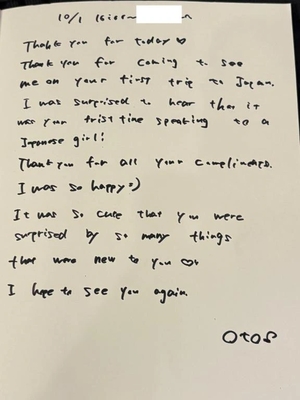 10/1 16:00~
Thank you for today♡
Thank you for coming to see
me on your first trip to Japan.
I was surprised to hear that it
was your first time speaking to a
Japanese girl!
Thank you for all your compliments.
I was so happy:)
It was so cute that you were
surprised by so many things
that were new to you ♡
I hope to see you again.